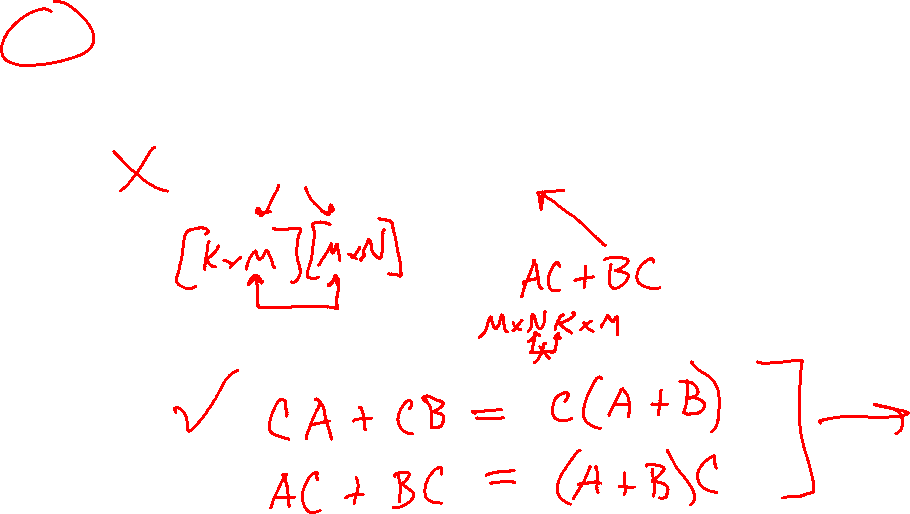 [K×M][M×N]
AC+BC
M×N K×M
CA + CB = C(A+B)
AC + BC = (A+B)C